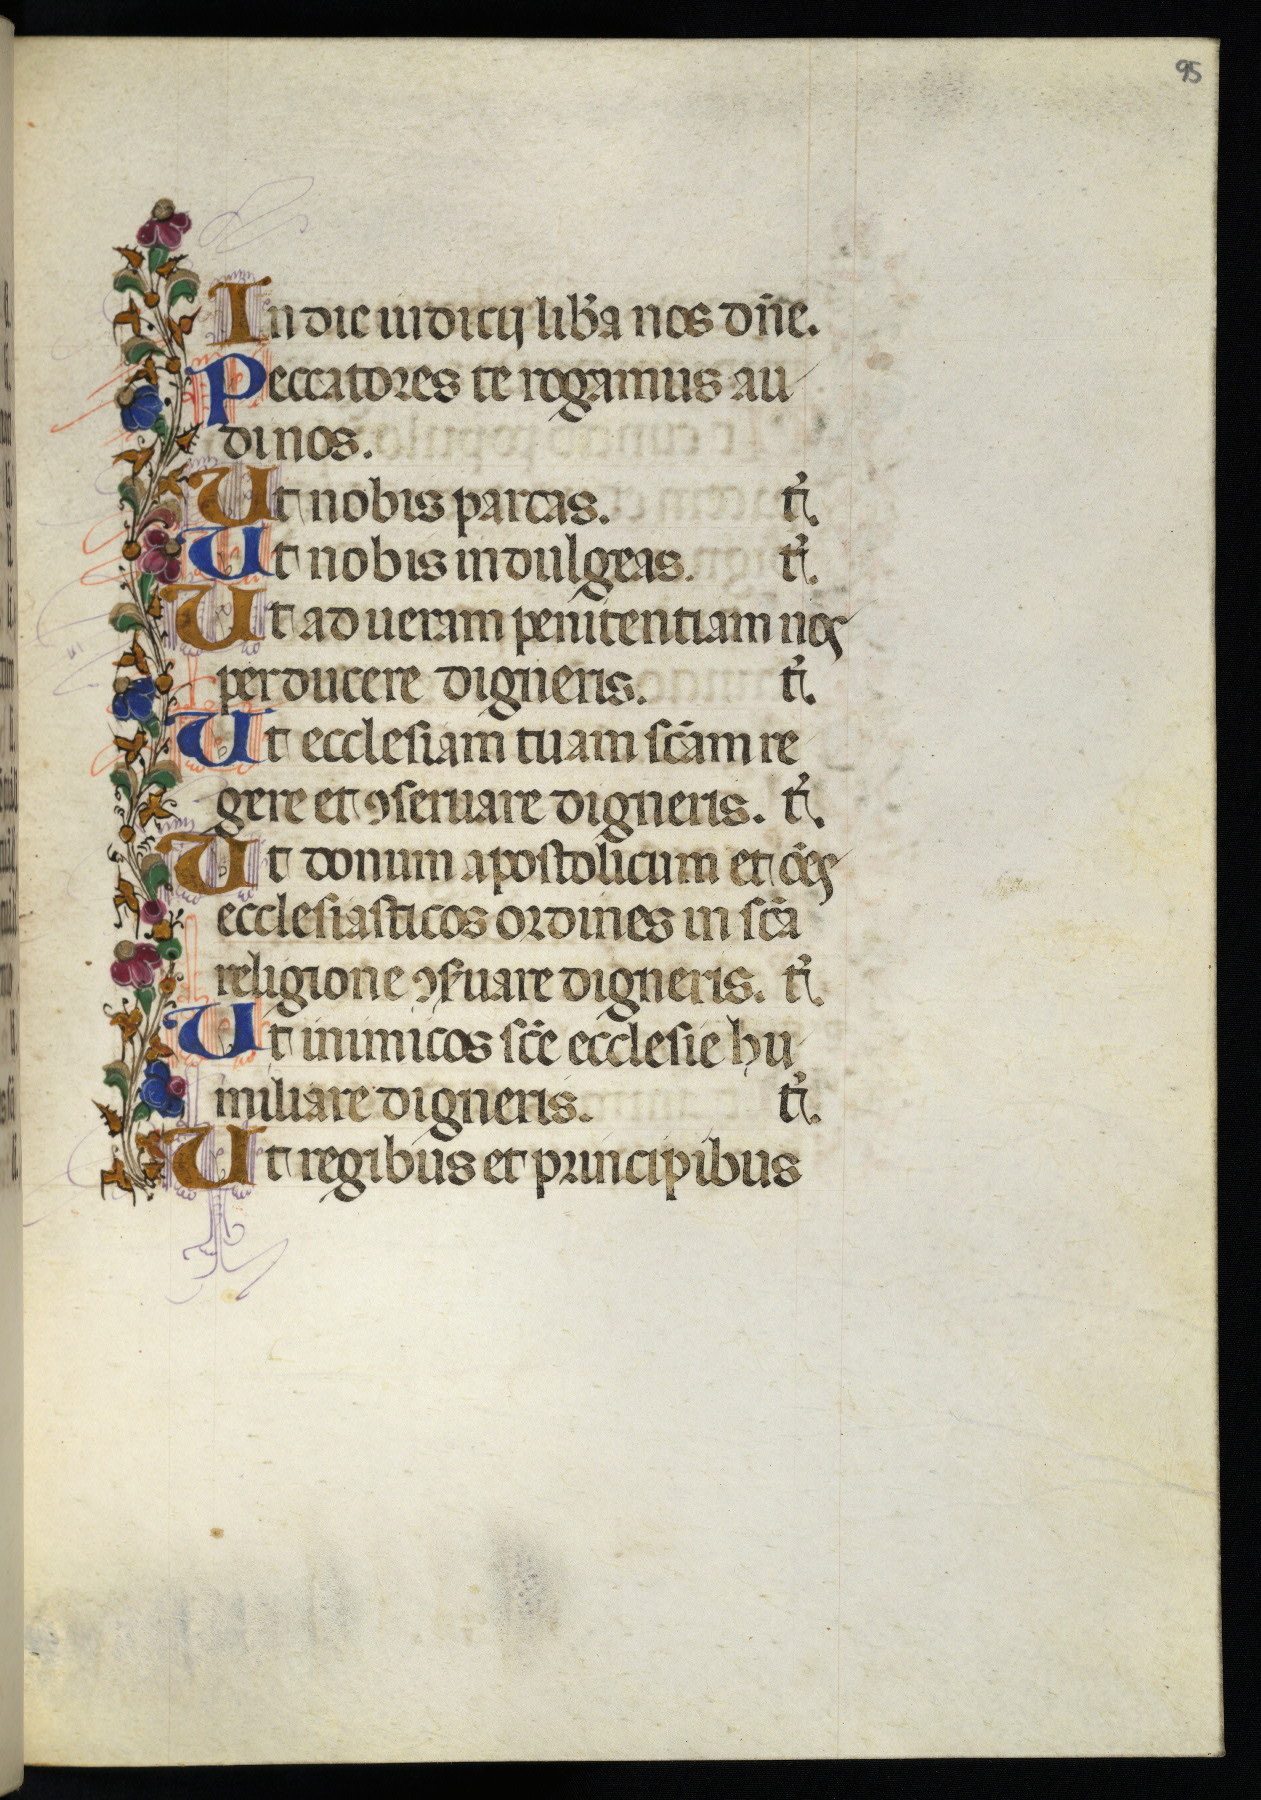 95
In die iudicij lib̾a nos dn̄e.
Peccatores te rogamus au
di nos.
Ut nobis parcas. t̾i.
Ut nobis indulgeas. t̾i.
Ut ad ueram penitentiam nos
perducere digneris. t̾i.
Ut ecclesiam tuam sc̄am re
gere et ꝯseruare digneris. t̾i.
Ut donum apostolicum et oēs
ecclesiasticos ordines in sc̄a
religione ꝯs̾uare digneris. t̾i.
Ut inimicos sc̄e ecclesie hu
miliare digneris. t̾i.
Ut regibus et principibus